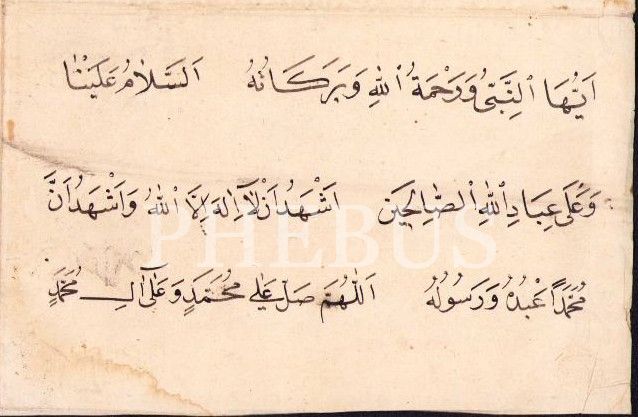 اَيُّهَا ٱلنَّبِىُّ وَرَحْمَةُ ٱللّٰهِ وَبَرَكَاتُهُ اَلسَّلَامُ عَلَيْنَا
وَعَلَى عِبَادِ ٱللّٰهِ ٱلصَّالِحِيَن اَشْهَدُ اَنْ لَآ اِلٰهَ اِلَّا ٱللّٰهُ وَاَشْهَدُ اَنَّ
PHEBUS
مُحَمَّدًا عَبْدُهُ وَرَسُولُهُ اَللّٰهُمَّ صَلِّ عَلٰى مُحَمَّدٍ وَعَلٰٓى اٰلِ مُحَمَّدٍ